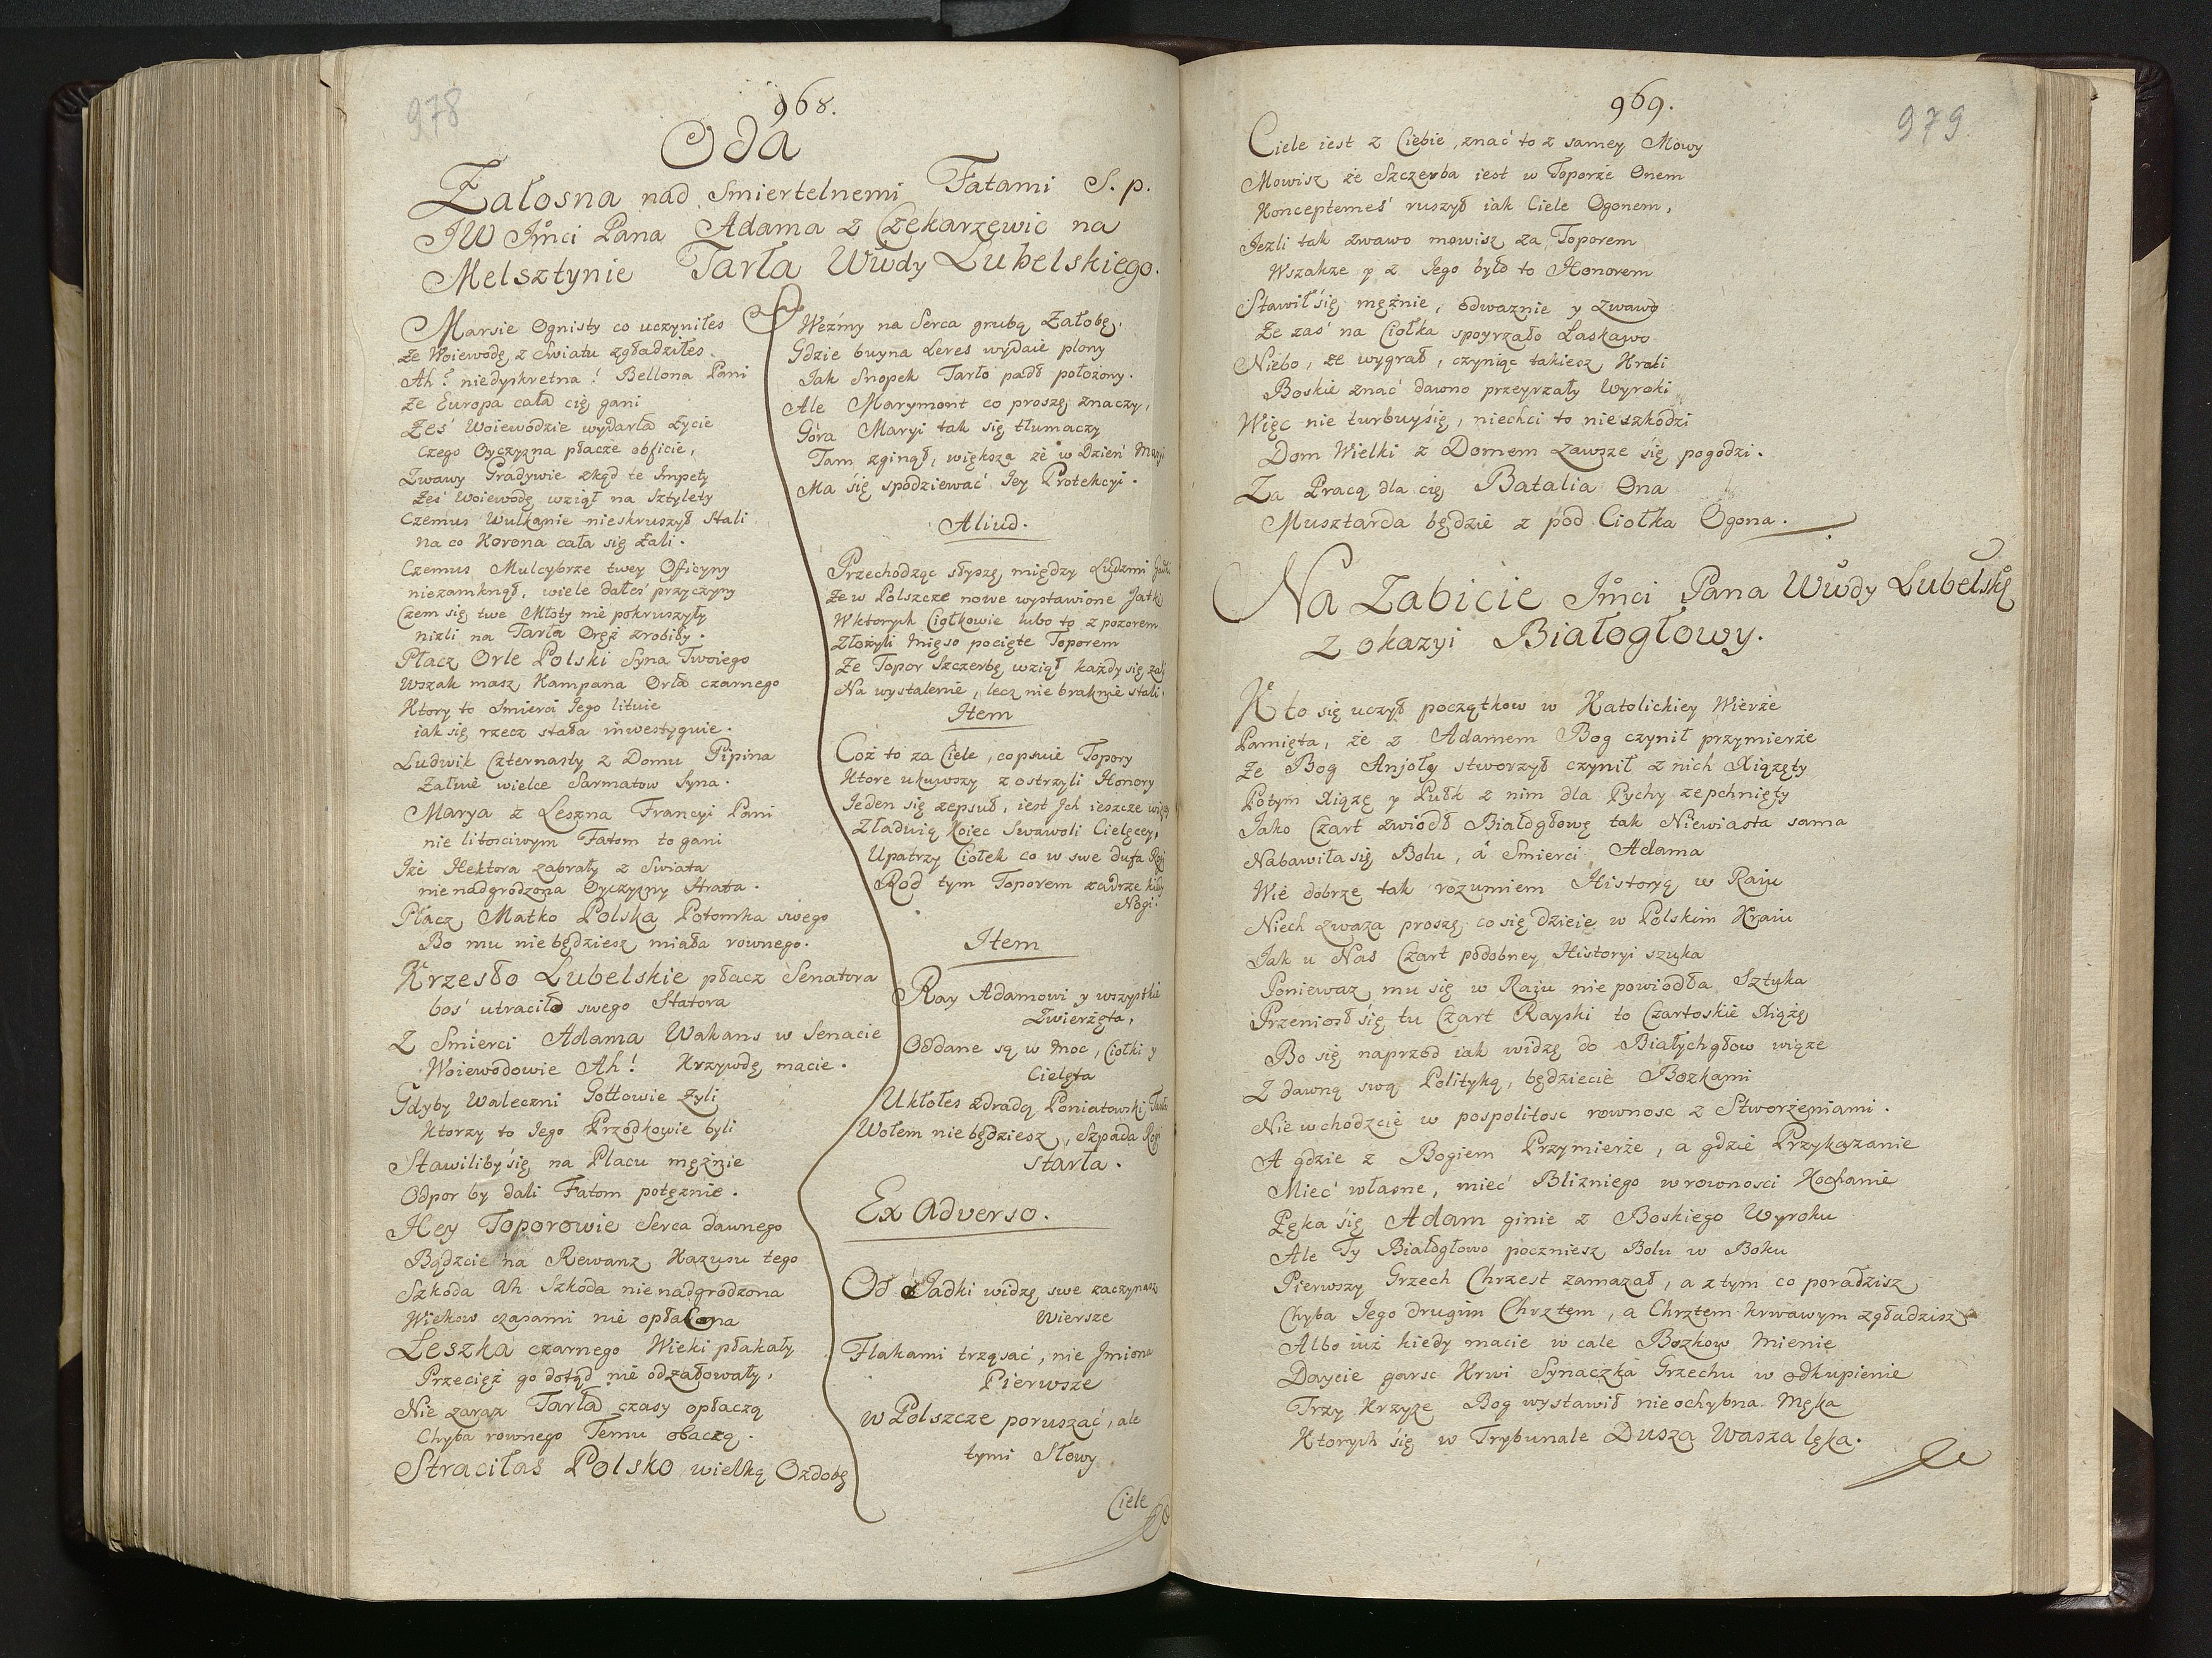 978
968.
Oda
Załosna nad Smiertelnemi Fatami S. p.
JW Jmci Pana Adama z Czekarzewic na
Melsztynie Tarła Wwdy Lubelskiego.
Marsie Ognisty co uczyniłes
że Woiewodę z Swiatu zgładziłes
Ah! niedyskretna! Bellona Pani
że Europa cała cię gani
żeś Woiewodzie wydarła życie
czego Oyczyzna płacze obficie,
Zwawy Grádywie zkąd te Impety
żeś Woiewodę wziął na Sztylety
Czemus Wulkanie nieskruszył Stali
na co Korona cała się żali.
Czemus Mulcybrze twey Oficyny
niezamknął, wiele dałeś przyczyny
Czem się twe Młoty nie pokruszyły
nizli na Tarła Oręż zrobiły.
Płacz Orle Polski Syna Twoiego
Wszak masz Kampana Orła czarnego
Ktory to Smierci Jego lituie
iak się rzecz stała inwestyguie.
Ludwik Czternasty z Domu Pipina
żałuie wielce Sarmatow Syna.
Marya z Leszna Francyi Pani
nie litosciwym Fatom to gani
Iże Hektora zabrały z Swiata
nienadgrodzona Oyczyzny Strata.
Płacz Matko Polska Potomka swego
Bo mu niebędziesz miała rownego.
Krzesło Lubelskie płacz Senatora
boś utraciło swego Statora
Z Smierci Adama Wakans w Senacie
Woiewodowie Ah! Krzywdę macie.
Gdyby Waleczni Gottowie żyli
Ktorzy to Jego Przodkowie byli
Stawilibyśię na Placu mężnie
Odpor by dali Fatom potęznie.
Hey Toporowie Serca dawnego
Bądzcie na Rewanz Kazusu tego
Szkoda Ah Szkoda nienadgrodzona
Wiekow czasami nie opłacona
Leszka czarnego Wieki płakały
Przecięż go dotąd nie odżałowały,
Nie zaraz Tarła czasy opłaczą
Chyba rownego Temu obaczą.
Straciłas Polsko wielką Ozdobę
Weźmy na Serca grubą Załobę.
Gdzie buyna Ceres wydaie plony
Jak Snopek Tarło padł położony.
Ale Marymont co proszę znaczy,
Góra Maryi tak się tłumaczy
Tam zginął, większa że w Dzień Maryi
Ma się spodziewać Jey Protekcyi.
Aliud.
Przechodząc słyszę między Ludzmi
że w Polszcze nowe wystawione Jatki
W ktorych Ciołkowie lubo to z pozorem
Złożyli Mięso pocięte Toporem
że Topor Szczerbę wziął każdy się żali
Na wystalenie, lecz nie braknie stali.
Item
Coż to za Ciele, co psuie Topory
Ktore ukuwszy z ostrzyli Honory
Jeden się zepsuł, iest Jch ieszcze więcey
Zładuią Koiec Swawoli Cielęcey,
Upatrzy Ciołek co w swe dufa Rogi
Pod tym Toporem zadrze kiedy
Nogi.
Item
Ray Adamowi y wszystkie
Zwierzęta,
Oddane są w Moc, Ciołki y
Cielęta
Ukłołes zdradą Poniatowski Tarła
Wołem niebędziesz, Szpada Rogi
starła.
Ex Adverso.
Od Jadki widzę swe zaczynasz
Wiersze
Flakami trząsać, nie Jmiona
Pierwsze
w Polszcze poruszać, ale
tymi Słowy
Ciele
969.
979
Ciele iest z Ciebie, znać to z samey Mowy
Mowisz że Szczerba iest w Toporze Onem
Konceptemeś ruszył iak Ciele Ogonem,
Jezli tak zwawo mowisz za Toporem
Wszakze y z Jego było to Honorem
Stawiłsię mężnie, odwaznie y zwawo
Ze zaś na Ciołka spoyrzało Łaskawo
Niebo, że wygrał, czyniąc takiesz Kroki
Boskie znać dawno przeyrzały Wyroki
Więc nie turbuysię, niechci to nieszkodzi
Dom Wielki z Domem zawsze się pogodzi.
Za Pracą dla cię Batalia Ona
Musztarda będzie z pod Ciołka Ogona.
Na Zabicie Jmci Pana Wwdy Lubelskº
z okazyi Białogłowy.
Kto się uczył początkow w Katolickiey Wierze
Pamięta, że z Adamem Bog czynił przymierze
że Bog Anjoły stworzył czynił z nich Xiązęty
Potym Xiązę y Pułk z nim dla Pychy zepchnięty
Jako Czart zwiodł Białogłowę tak Niewiasta sama
Nabawiła się Bolu, a Smierci Adama
Wie dobrze tak rozumiem Historyą w Raiu
Niech zwaza proszę co się dzieie w Polskim Kraiu
Jak u Nas Czart podobney Historyi szuka
Poniewaz mu się w Raiu nie powiodła Sztuka
Przeniosł się tu Czart Rayski to Czartoskie Xiążę
Bo się naprzod iak widzę do Białychgłow wiąze
Z dawną swą Polityką, będziecie Bozkami
Nie wchodzcie w pospolitosc rownosc z Stworzeniami.
A gdzie z Bogiem Przymierze, a gdzie Przykazanie
Mieć własne, mieć Blizniego w rownosci Kochanie
Pęka się Adam ginie z Boskiego Wyroku
Ale Ty Białogłowo poczniesz Bolu w Boku
Pierwszy Grzech Chrzest zamazał, a z tym co poradzisz
Chyba Jego drugim Chrztem, a Chrztem krwawym zgładzisz
Albo iuż kiedy macie w cale Bozkow Mienie
Daycie garsc Krwi Synaczka Grzechu w odkupienie
Trzy Krzyże Bog wystawił nieochybna Męka
Ktorych się w Trybunale Dusza Wasza lęka.